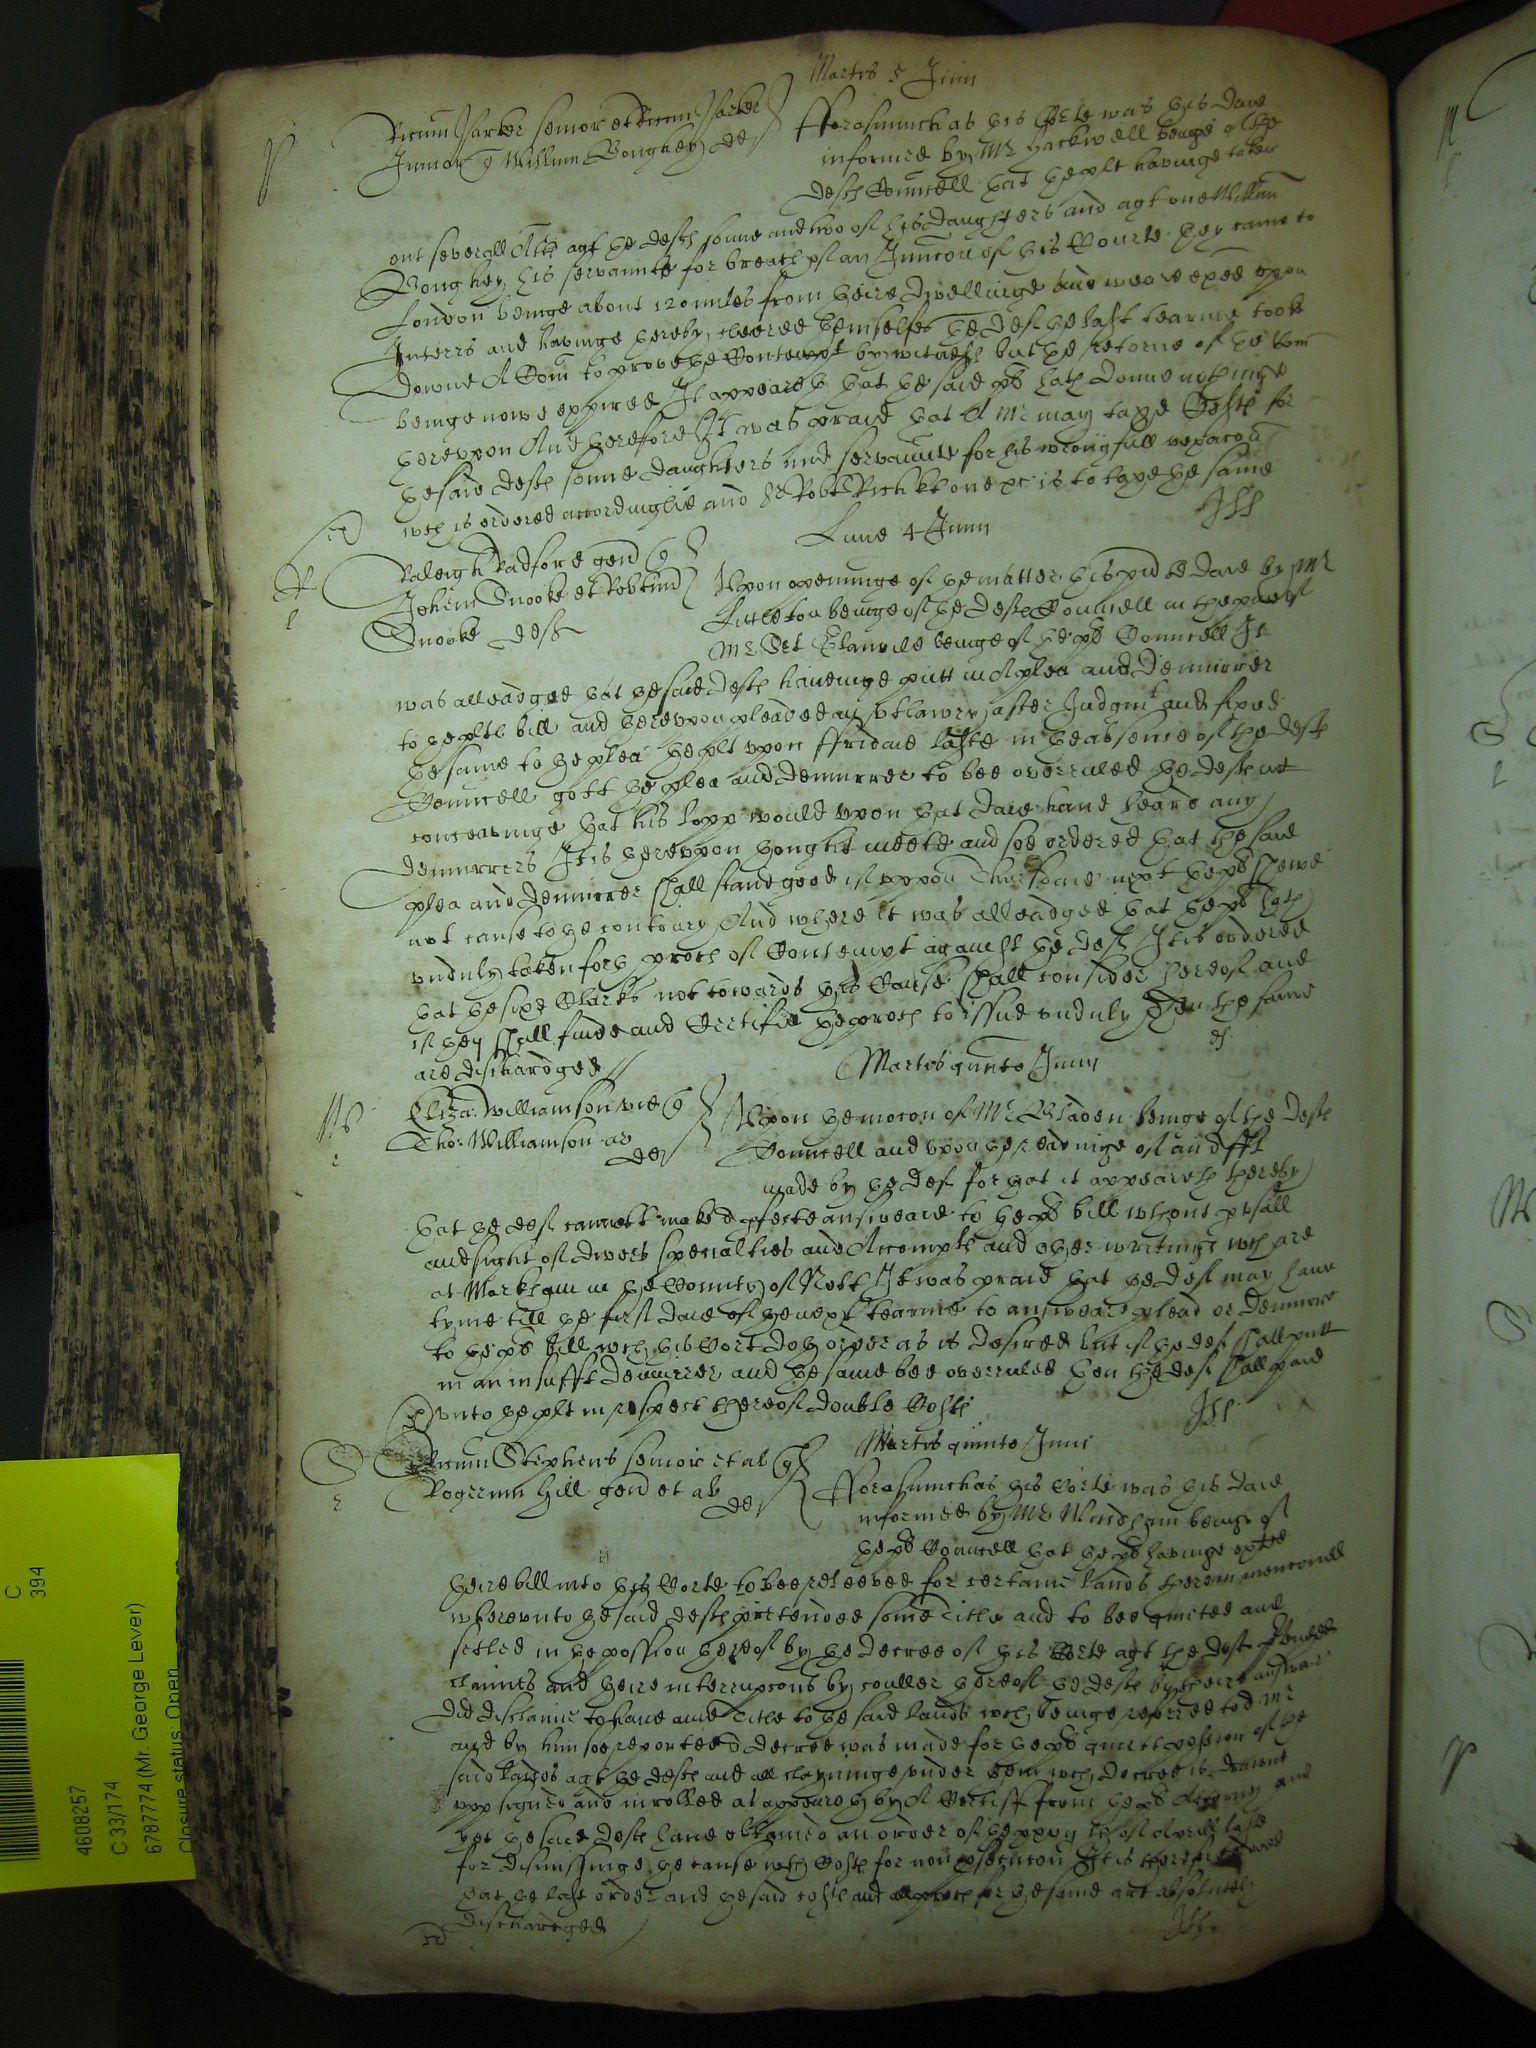 Martis 5 Junii
Ricum Parker senior et Ricum Parker
Junior q Willm Boughey def
Fforasmuch as this Corte was this daie
informed by Mr Hackwell beinge of the
defts Councell that the plt havinge taken
out severall Atts agt the defts sonne and two of his daughters and agt one Willm
Boughey his servaunte for breach of an Iniuncon of this Courte they came to
London beinge about 120 miles from theire dwellinge and weare exed upon
Interrs and havinge thereby cleered themselves the def the last tearme tooke
downe A Com to prove the Contempt by witness but the retorne of the Com
beinge nowe expired It appeareth that the said pl hath donne nothinge
thereupon And therefore It was praid that A Mr may taxe Costs for
the said defts sonne daughters and servaunte for his wrongfull vexacon
wch is ordered accordinglie and Sr Robt Rich kt one &c is to taxe the same
Lune 4 Junii
Raleigh Radford gen q
Johem Snooke et Robtum
Snooke defts
Upon openinge of the matter this pnte daie by Mr
Littleton beinge of the defts Councell in the pnce of
Mr Sert Glanvile beinge of the pl Councell It
was alleadged that the said defts haveinge putt in A plea and Demurrer
to the plts bill and thereupon pleaded an utlawry after Judgmt and fixed
the same to the plea the plt upon Ffridaie laste in the absence of the defts
Councell gott the plea and demurrer to bee overruled the defts not
conceavinge that his lopp would upon that daie have heard any
demurrers It is thereupon thought meete and soe ordered that the said
plea and demurrer shall stand good if uppon Thursdaie next the pl shewe
not cause to the contrary And where it was alleadged that the pl hath
unduly taken forth proces of Contempt against the defts It is ordered
that the sixe Clarks not towards this Cause shall consider thereof and
if they shall finde and Certifie the proces to issue unduly then the same
are dischardged
Martis quinto Junii
Eliza: Williamson vid q
Tho: Williamson ar
def
Upon the mocon of Mr Gladen beinge of the defts
Councell and upon the readinge of an Afft
made by the def for that it appeareth thereby
that the def cannott make A pfecte answeare to the pl bill wthout pusall
and sight of divers specialties and Accompts and other writings wch are
at Markham in the County of Nott It was praid that the def may have
tyme till the first daie of the next tearme to answeare plead or demurre
to the pl bill wch this Cort doth order as is desired but if the def shall putt
in an insufft demurrer and the same bee overruled then the def shall paie
unto the plt in respect thereof double Costs
Martis quinto Junii
Ricum Stephens senior et al q
Rogerum Hill gen et al
def
Fforasmuch as this Corte was this daie
informed by Mr Windham beinge of
the pl Councell that the pl havinge exted
theire bill into this Corte to bee releeved for certaine lands therein menconed
whereunto the said defts pretended some title and to bee quieted and
setled in the possion thereof by the decree of this Corte agt the defts
claimes and theire interrupcons by couller thereof the defts by theire answeare
did disclaime to have anie title to the said lands wch beinge referred to A Mr
and by him soe reported A decree was made for the pl quiett possession of the
said lands agt the defts and all clayminge under them wch decree is drawne
upp signed and inrolled as appeareth by A Certiff from the pl Attorney and
yet the said defts have obtained an order of the of Aprill last
for dismissinge the cause wth Costs for non psecucon It is therefore ordered
that the last order and the said costs and all proces for the same are absolutely
dischardged
C
394
4608257
C 33/174
6787774 (Mr. George Lever)
Closure status: Open